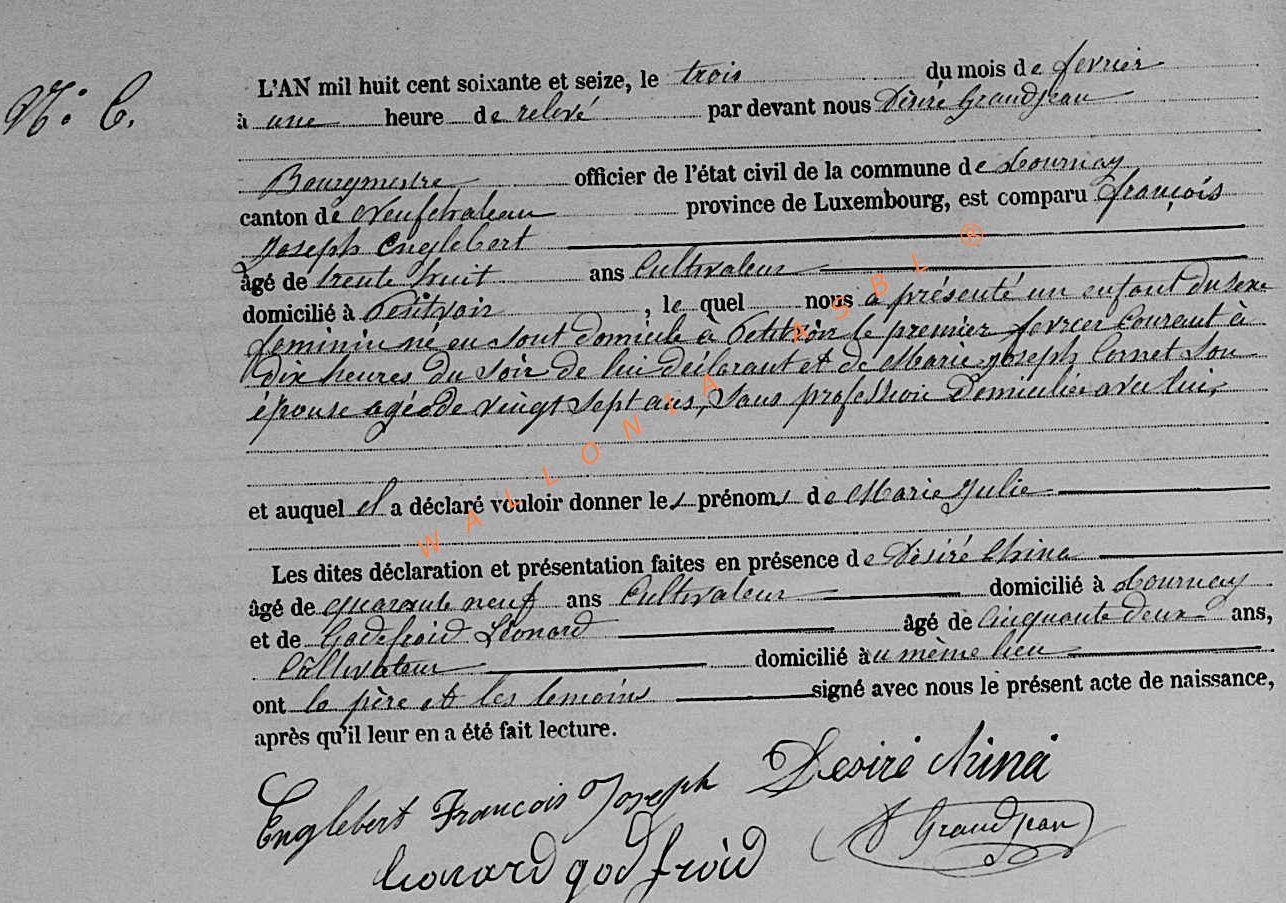 N.° 6.
L'AN mil huit cent soixante et seize, le trois du mois de fevrier
à une heure de relevé par devant nous Désiré Grandjean
Bourgmestre officier de l'état civil de la commune de Tournay
canton de Neufchateau province de Luxembourg, est comparu François
Joseph Englebert
âgé de trente huit ans Cultivateur
domicilié à Petitvoir, le quel nous a présenté un enfant du sexe
feminin né en sont domicile à Petitvoir le premier fevrier courant à
dix heures du soir de lui déclarant et de Marie Joseph Cornet son
épouse agée de vingt sept ans, sans profession domiciliée avec lui,
et auquel il a déclaré vouloir donner les prénoms de Marie Julie
Les dites déclaration et présentation faites en présence de Désiré China
âgé de quarante neuf ans Cultivateur domicilié à Tournay
et de Godefroid Léonard âgé de cinquante deux ans,
Cultivateur domicilié au même lieu
ont le père et les temoins signé avec nous le présent acte de naissance,
après qu'il leur en a été fait lecture.
Englebert François Joseph Desiré China
Leonard godfroid D Grandjean
WALLONIA ASBL ®